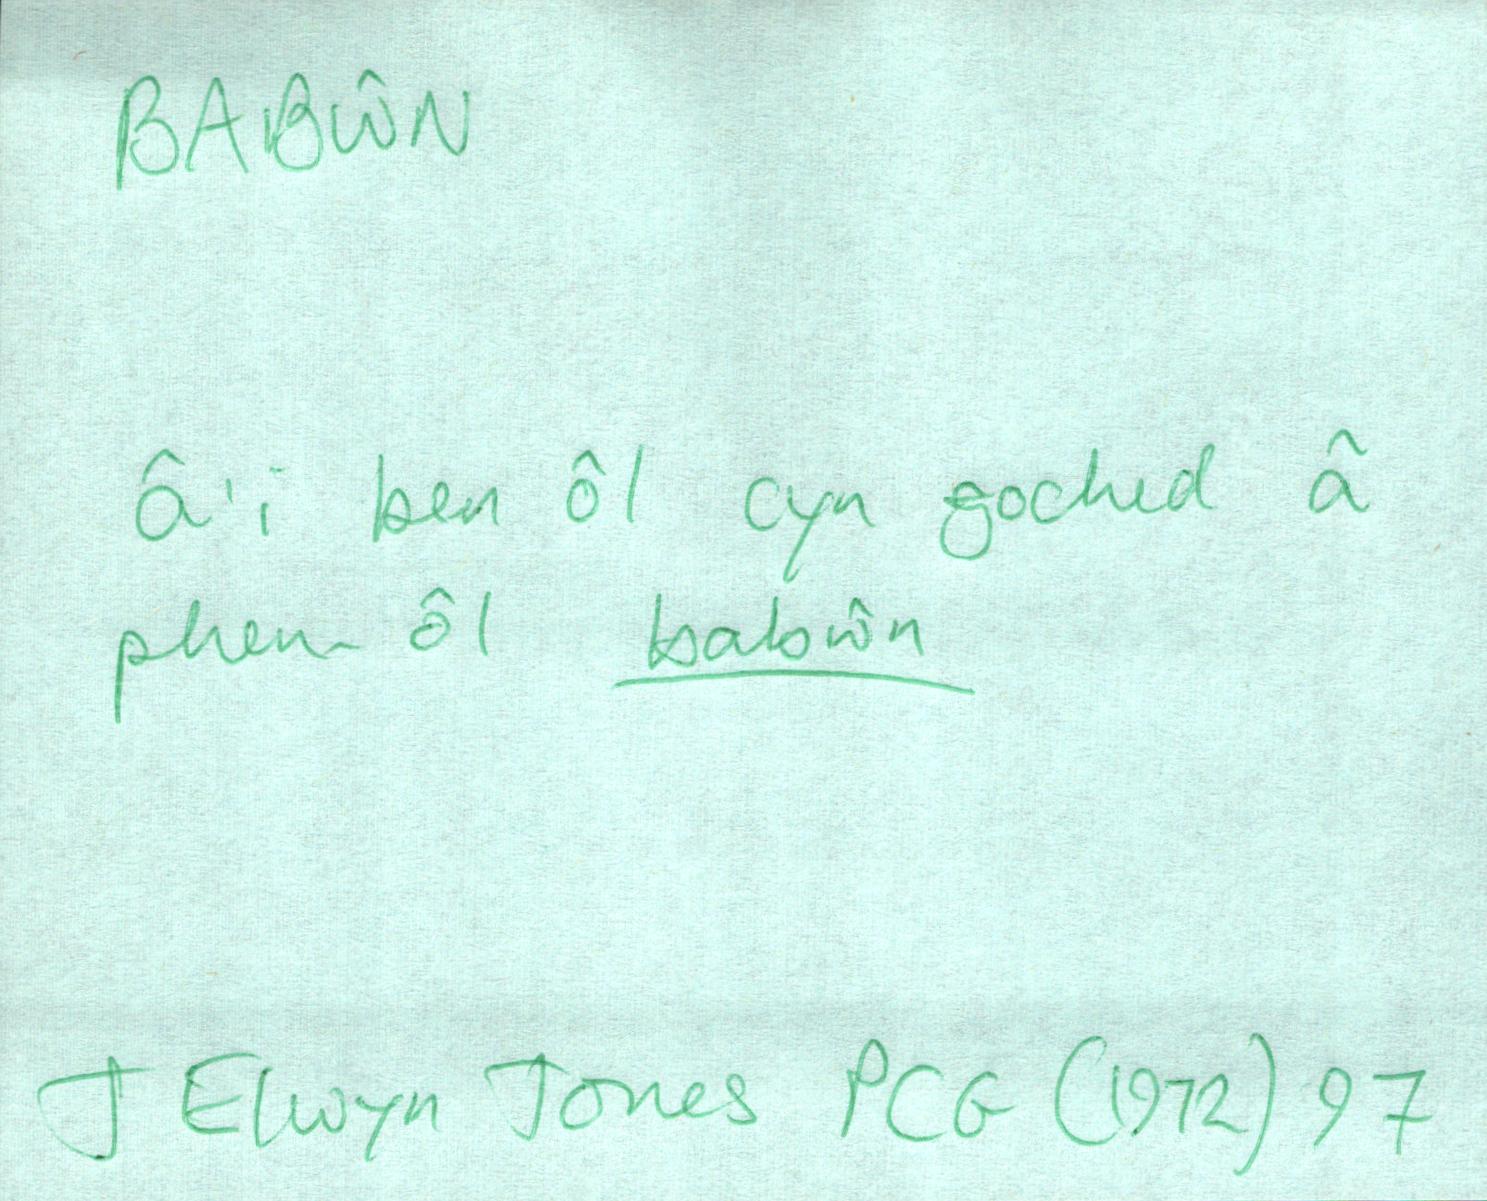 BABŴN
â'i ben ôl cyn goched â
phen ôl babŵn
J Elwyn Jones PCG (1972) 97